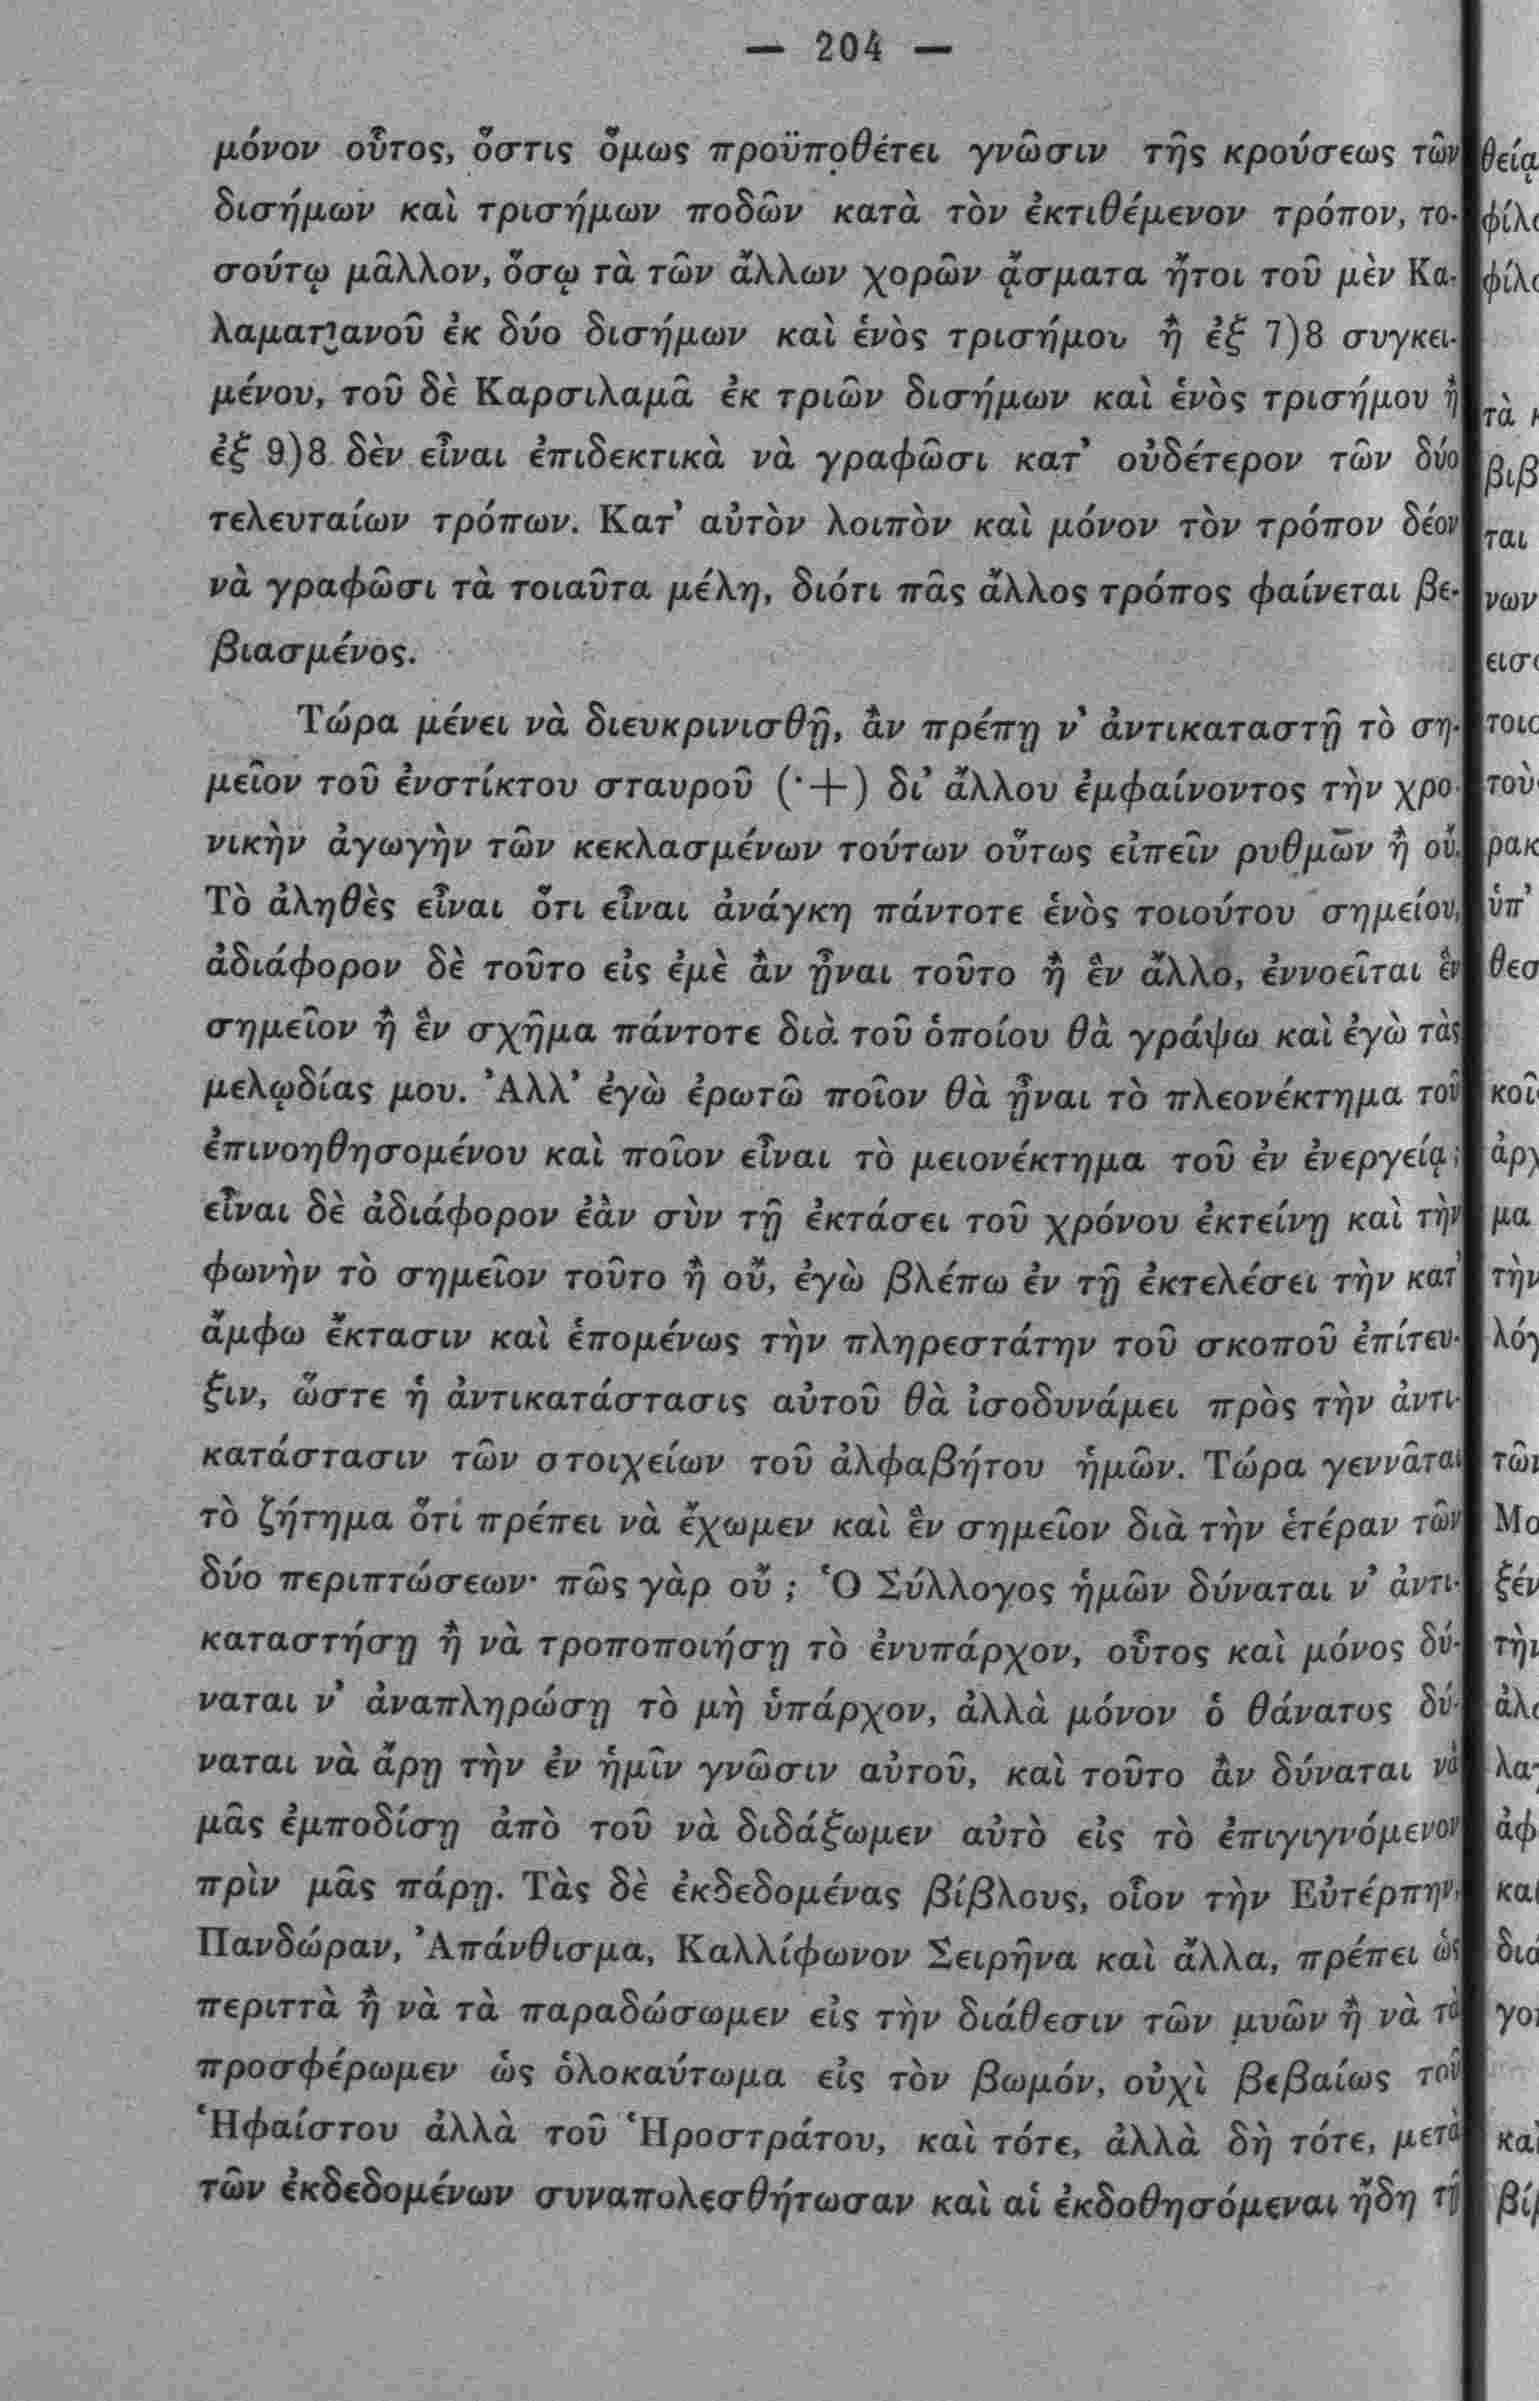 — 204 —
μόνον οὗτος, ὅστις ὅμως προϋποθέτει γνῶσιν τῆς κρούσεως τῶν
δισήμων καὶ τρισήμων ποδῶν κατὰ τὸν ἐκτιθέμενον τρόπον, το-
σούτῳ μᾶλλον, ὅσῳ τὰ τῶν ἄλλων χορῶν ᾄσματα ἤτοι τοῦ μὲν Κα-
λαματιανοῦ ἐκ δύο δισήμων καὶ ἑνὸς τρισήμου ἢ ἐξ 7)8 συγκει-
μένου, τοῦ δὲ Καρσιλαμᾶ ἐκ τριῶν δισήμων καὶ ἑνὸς τρισήμου ἢ
ἐξ 9)8 δὲν εἶναι ἐπιδεκτικὰ νὰ γραφῶσι κατ’ οὐδέτερον τῶν δύο
τελευταίων τρόπων. Κατ’ αὐτὸν λοιπὸν καὶ μόνον τὸν τρόπον δέον
νὰ γραφῶσι τὰ τοιαῦτα μέλη, διότι πᾶς ἄλλος τρόπος φαίνεται βε-
βιασμένος.
Τώρα μένει νὰ διευκρινισθῇ, ἂν πρέπῃ ν’ ἀντικαταστῇ τὸ ση-
μεῖον τοῦ ἐνστίκτου σταυροῦ (·+) δι’ ἄλλου ἐμφαίνοντος τὴν χρο-
νικὴν ἀγωγὴν τῶν κεκλασμένων τούτων οὕτως εἰπεῖν ρυθμῶν ἢ οὔ.
Τὸ ἀληθὲς εἶναι ὅτι εἶναι ἀνάγκη πάντοτε ἑνὸς τοιούτου σημείου,
ἀδιάφορον δὲ τοῦτο εἰς ἐμὲ ἂν ᾖναι τοῦτο ἢ ἓν ἄλλο, ἐννοεῖται ἓν
σημεῖον ἢ ἓν σχῆμα πάντοτε διὰ τοῦ ὁποίου θὰ γράψω καὶ ἐγὼ τὰς
μελῳδίας μου. Ἀλλ’ ἐγὼ ἐρωτῶ ποῖον θὰ ᾖναι τὸ πλεονέκτημα τοῦ
ἐπινοηθησομένου καὶ ποῖον εἶναι τὸ μειονέκτημα τοῦ ἐν ἐνεργείᾳ;
εἶναι δὲ ἀδιάφορον ἐὰν σὺν τῇ ἐκτάσει τοῦ χρόνου ἐκτείνῃ καὶ τὴν
φωνὴν τὸ σημεῖον τοῦτο ἢ οὔ, ἐγὼ βλέπω ἐν τῇ ἐκτελέσει τὴν κατ’
ἄμφω ἔκτασιν καὶ ἑπομένως τὴν πληρεστάτην τοῦ σκοποῦ ἐπίτευ-
ξιν, ὥστε ἡ ἀντικατάστασις αὐτοῦ θὰ ἰσοδυνάμει πρὸς τὴν ἀντι-
κατάστασιν τῶν στοιχείων τοῦ ἀλφαβήτου ἡμῶν. Τώρα γεννᾶται
τὸ ζήτημα ὅτι πρέπει νὰ ἔχωμεν καὶ ἓν σημεῖον διὰ τὴν ἑτέραν τῶν
δύο περιπτώσεων· πῶς γὰρ οὔ ; Ὁ Σύλλογος ἡμῶν δύναται ν’ ἀντι-
καταστήσῃ ἢ νὰ τροποποιήσῃ τὸ ἐνυπάρχον, οὗτος καὶ μόνος δύ-
ναται ν’ ἀναπληρώσῃ τὸ μὴ ὑπάρχον, ἀλλὰ μόνον ὁ θάνατος δύ-
ναται νὰ ἄρῃ τὴν ἐν ἡμῖν γνῶσιν αὐτοῦ, καὶ τοῦτο ἂν δύναται νὰ
μᾶς ἐμποδίσῃ ἀπὸ τοῦ νὰ διδάξωμεν αὐτὸ εἰς τὸ ἐπιγιγνόμενον
πρὶν μᾶς πάρῃ. Τὰς δὲ ἐκδεδομένας βίβλους, οἷον τὴν Εὐτέρπην,
Πανδώραν, Ἀπάνθισμα, Καλλίφωνον Σειρῆνα καὶ ἄλλα, πρέπει ὡς
περιττὰ ἢ νὰ τὰ παραδώσωμεν εἰς τὴν διάθεσιν τῶν μυῶν ἢ νὰ τὰ
προσφέρωμεν ὡς ὁλοκαύτωμα εἰς τὸν βωμόν, οὐχὶ βεβαίως τοῦ
Ἡφαίστου ἀλλὰ τοῦ Ἡροστράτου, καὶ τότε, ἀλλὰ δὴ τότε, μετὰ
τῶν ἐκδεδομένων συναπολεσθήτωσαν καὶ αἱ ἐκδοθησόμεναι ἤδη τῇ